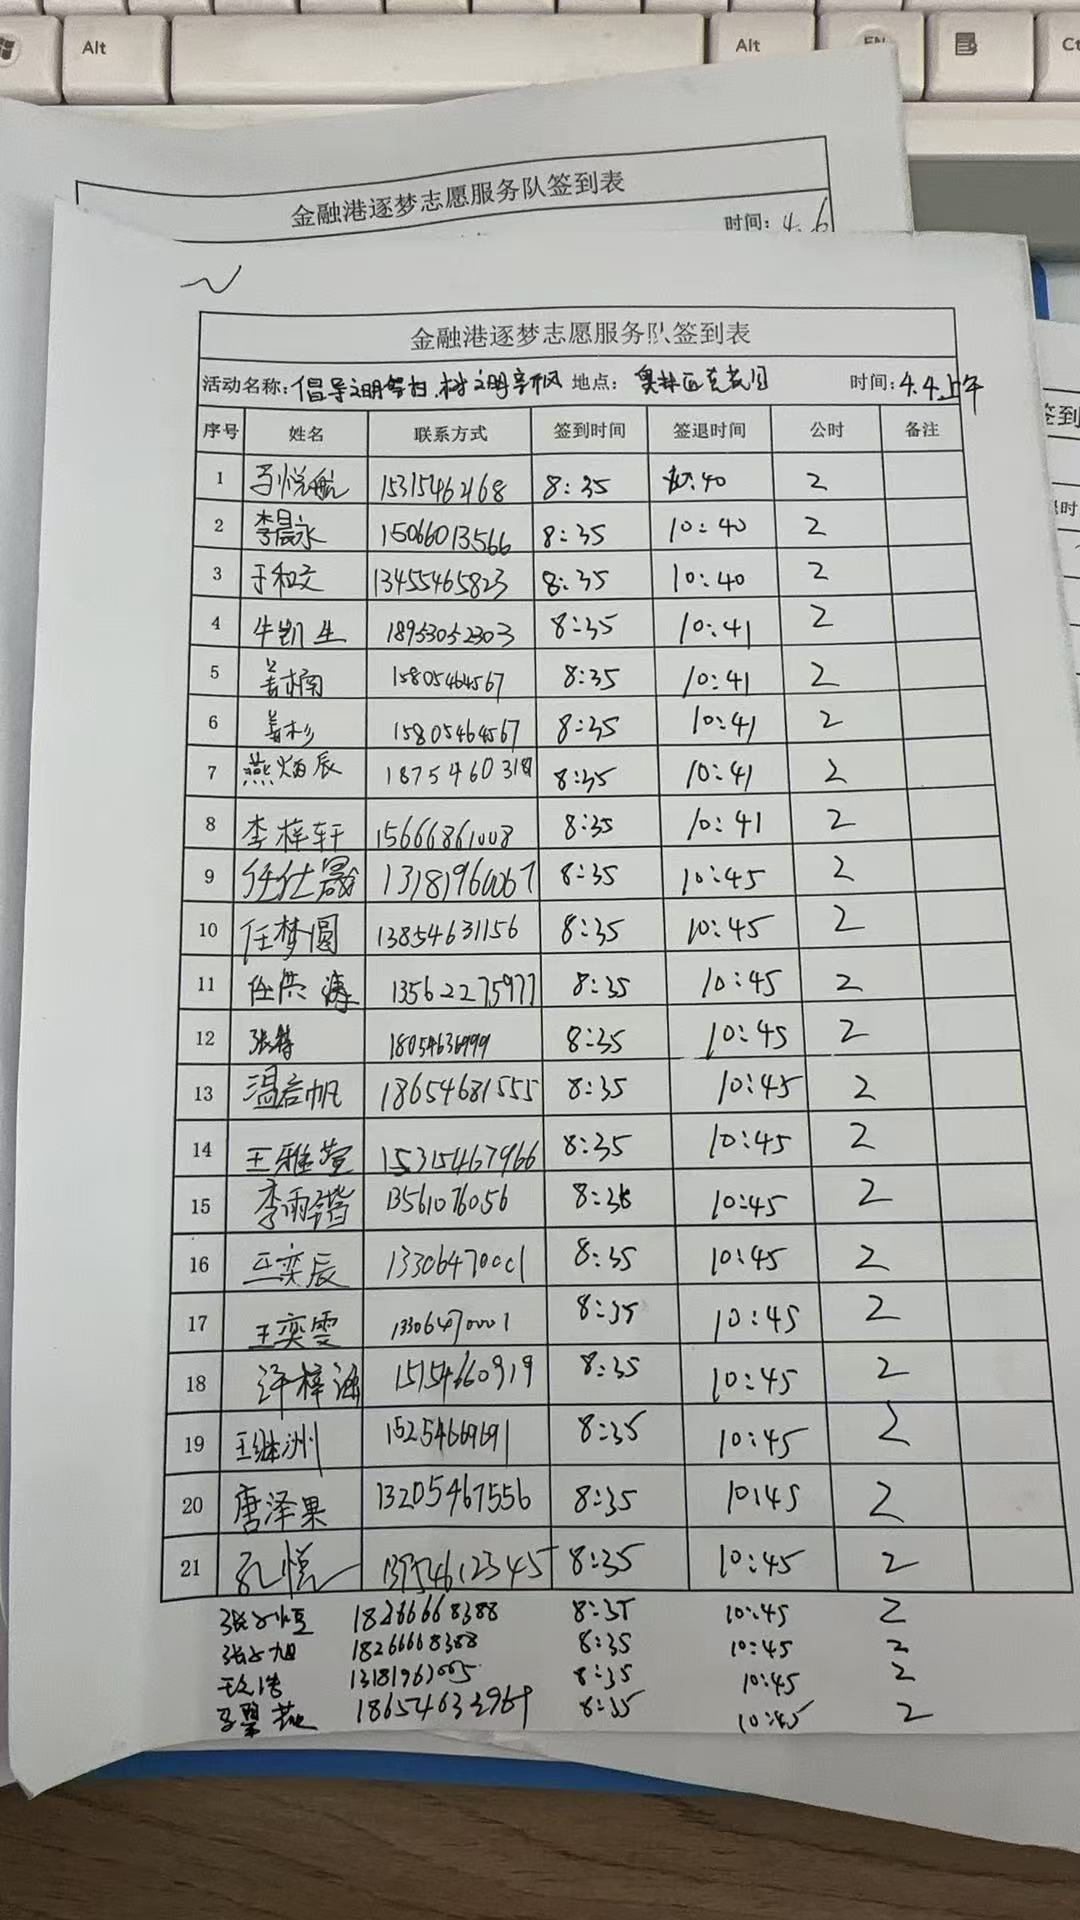 Alt
Alt
EN
金融港逐梦志愿服务队签到表
时间: 4.6
金融港逐梦志愿服务队签到表
活动名称: 倡导文明祭扫.树文明新风 地点: 时间: 4.4上午
序号 姓名 联系方式 签到时间 签退时间 公时 备注
1 马悦航 15315462168 8:35 :40 2
2 李晨永 15066013566 8:35 10:40 2
3 于和文 13455465823 8:35 10:40 2
4 牛凯生 18953052303 8:35 10:41 2
5 姜楠 15805464567 8:35 10:41 2
6 姜杉 15805464567 8:35 10:41 2
7 燕炳辰 8:35 10:41 2
8 李梓轩 15666861008 8:35 10:41 2
9 任仕晨 8:35 10:45 2
10 任梦圆 13854631156 8:35 10:45 2
11 任洪涛 13562275977 8:35 10:45 2
12 8:35 10:45 2
13 温若帆 18654681555 8:35 10:45 2
14 王雅萱 15315467966 8:35 10:45 2
15 李雨锴 13561076056 10:45 2
16 王奕辰 13306470001 8:35 10:45 2
17 王奕雯 13306470001 8:35 10:45 2
18 许梓涵 15154660919 8:35 10:45 2
19 王继洲 15254669691 8:35 10:45 2
20 唐泽果 13205467556 8:35 10:45 2
21 孔悦 8:35 10:45 2
张以恒 18266668388 8:35 10:45 2
张以旭 18266668388 8:35 10:45 2
8:35 10:45 2
18654633969 8:35 10:45 2